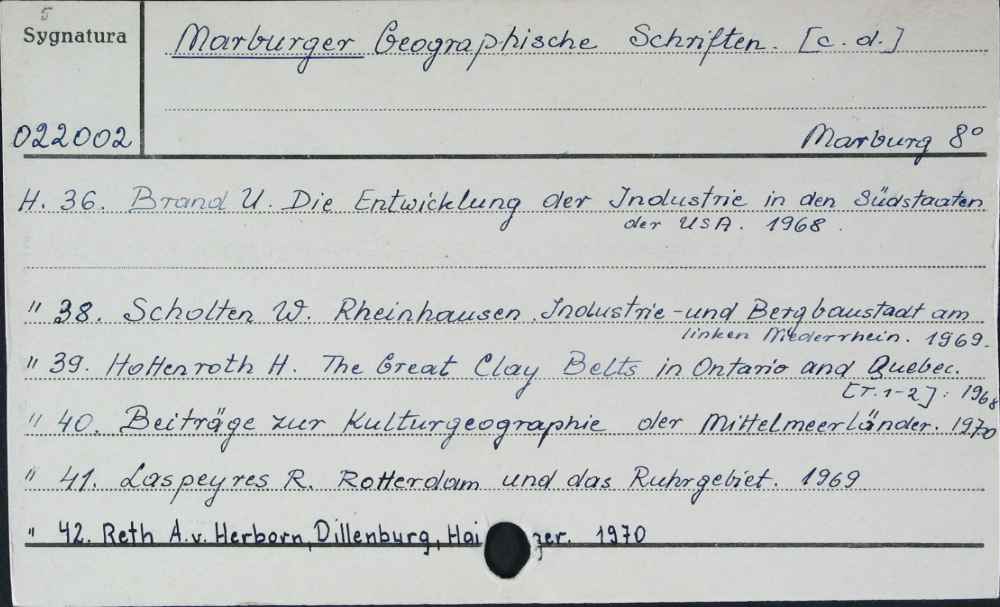 5
Sygnatura
Marburger Geographische Schriften. [c.d.]
022002
Marburg 8°
H. 36. Brand U. Die Entwicklung der Industrie in den Südstaaten
der USA. 1968.
" 38. Scholten W. Rheinhausen. Industrie-und Bergbaustadt am
linken Niederrhein. 1969.
" 39. Hottenroth H. The Great Clay Belts in Ontario and Quebec.
[T.1-2]. 1968
" 40. Beiträge zur Kulturgeographie der Mittelmeerländer. 1970
" 41. Laspeyres R. Rotterdam und das Ruhrgebiet. 1969
" 42. Reth A.v. Herborn, Dillenburg, 1970